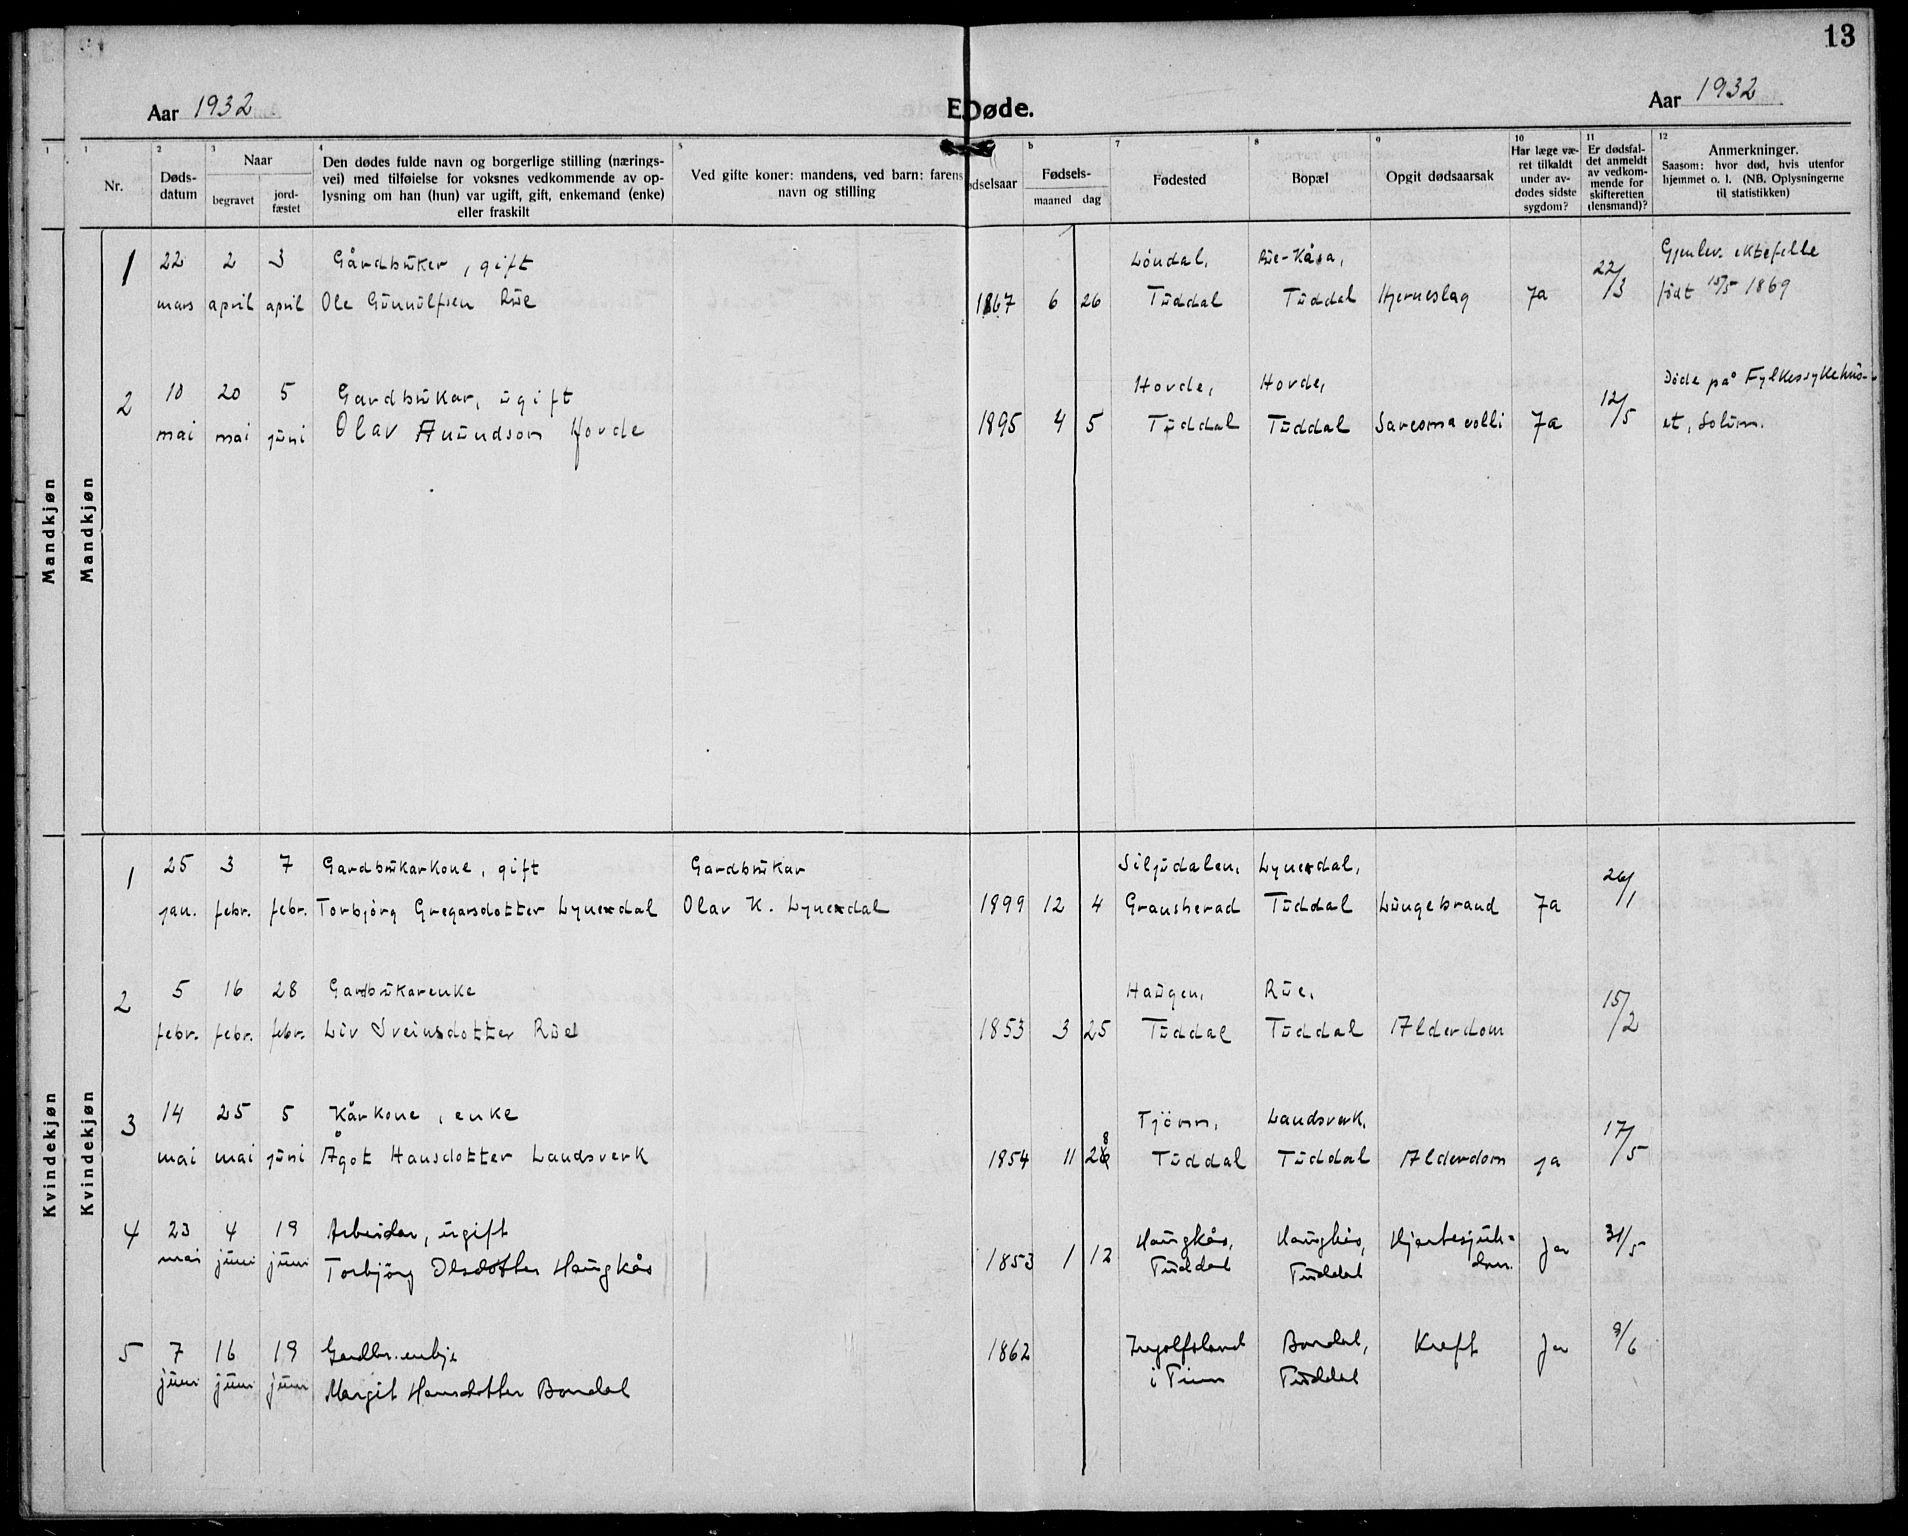 13
Aar 1932
E. Døde.
Aar 1932
1 1 2 3 4 5 6 7 8 9 10 11 12
Nr.
Døds-
datum
Naar
begravet
jord-
fæstet
Den dødes fulde navn og borgerlige stilling (nærings-
vei) med tilføielse for voksnes vedkommende av op-
lysning om han (hun) var ugift, gift, enkemand (enke)
eller fraskilt
Ved gifte koner: mandens, ved barn: farens
navn og stilling
ødselsaar
Fødsels-
maaned dag
Fødested
Bopæl
Opgit dødsaarsak
Har læge væ-
ret tilkaldt
under av-
dødes sidste
sygdom?
Er dødsfal-
det anmeldt
av vedkom-
mende for
skifteretten
(lensmand)?
Anmerkninger.
Saasom: hvor død, hvis utenfor
hjemmet o. l. (NB. Oplysningerne
til statistikken)
Mandkjøn
Mandkjøn
1 22 2 3 Gårdbruker, gift Løndal, Rue-Kåsa, 22/3 Gjenlev. ektefelle
mars april april Ole Gunnulfsen Rue 1867 6 26 Tuddal Tuddal Hjerneslag Ja født 15/5 1869
2 10 20 5 Gardbrukar, ugift Hovde, Hovde, 12/5 Døde på Fylkessykehus-
mai mai juni Olav Anundson Hovde 1895 4 5 Tuddal Tuddal Sarcoma colli Ja et, Solum.
Kvindekjøn
Kvindekjøn
1 25 3 7 Gardbrukarkone, gift Gardbrukar Siljudalen, Lynexdal, 26/1
jan. febr. febr. Torbjørg Gregarsdotter Lynexdal Olav K. Lynexdal 1899 12 4 Gransherad Tuddal Lungebrand Ja
2 5 16 28 Gardbrukarenke Haugen, Rue, 15/2
febr. febr. febr. Liv Sveinsdotter Rue 1853 3 25 Tuddal Tuddal Alderdom
3 14 25 5 Kårkone, enke Tjönn, Landsverk, 17/5
mai mai juni Ågot Hansdotter Landsverk 1854 11 268 Tuddal Tuddal Alderdom ja
4 23 4 19 Arbeidar, ugift Haugkås, Haugkås, Hjartesjuk- Ja 31/5
mai juni juni Torbjörg Olsdotter Haugkås 1853 1 12 Tuddal Tuddal dom.
5 7 16 19 Gardbr. enkje 1862 Ingolfsland Bondal, Kreft Ja 9/6
juni juni juni Margit Hansdotter Bondal i Tinn Tuddal